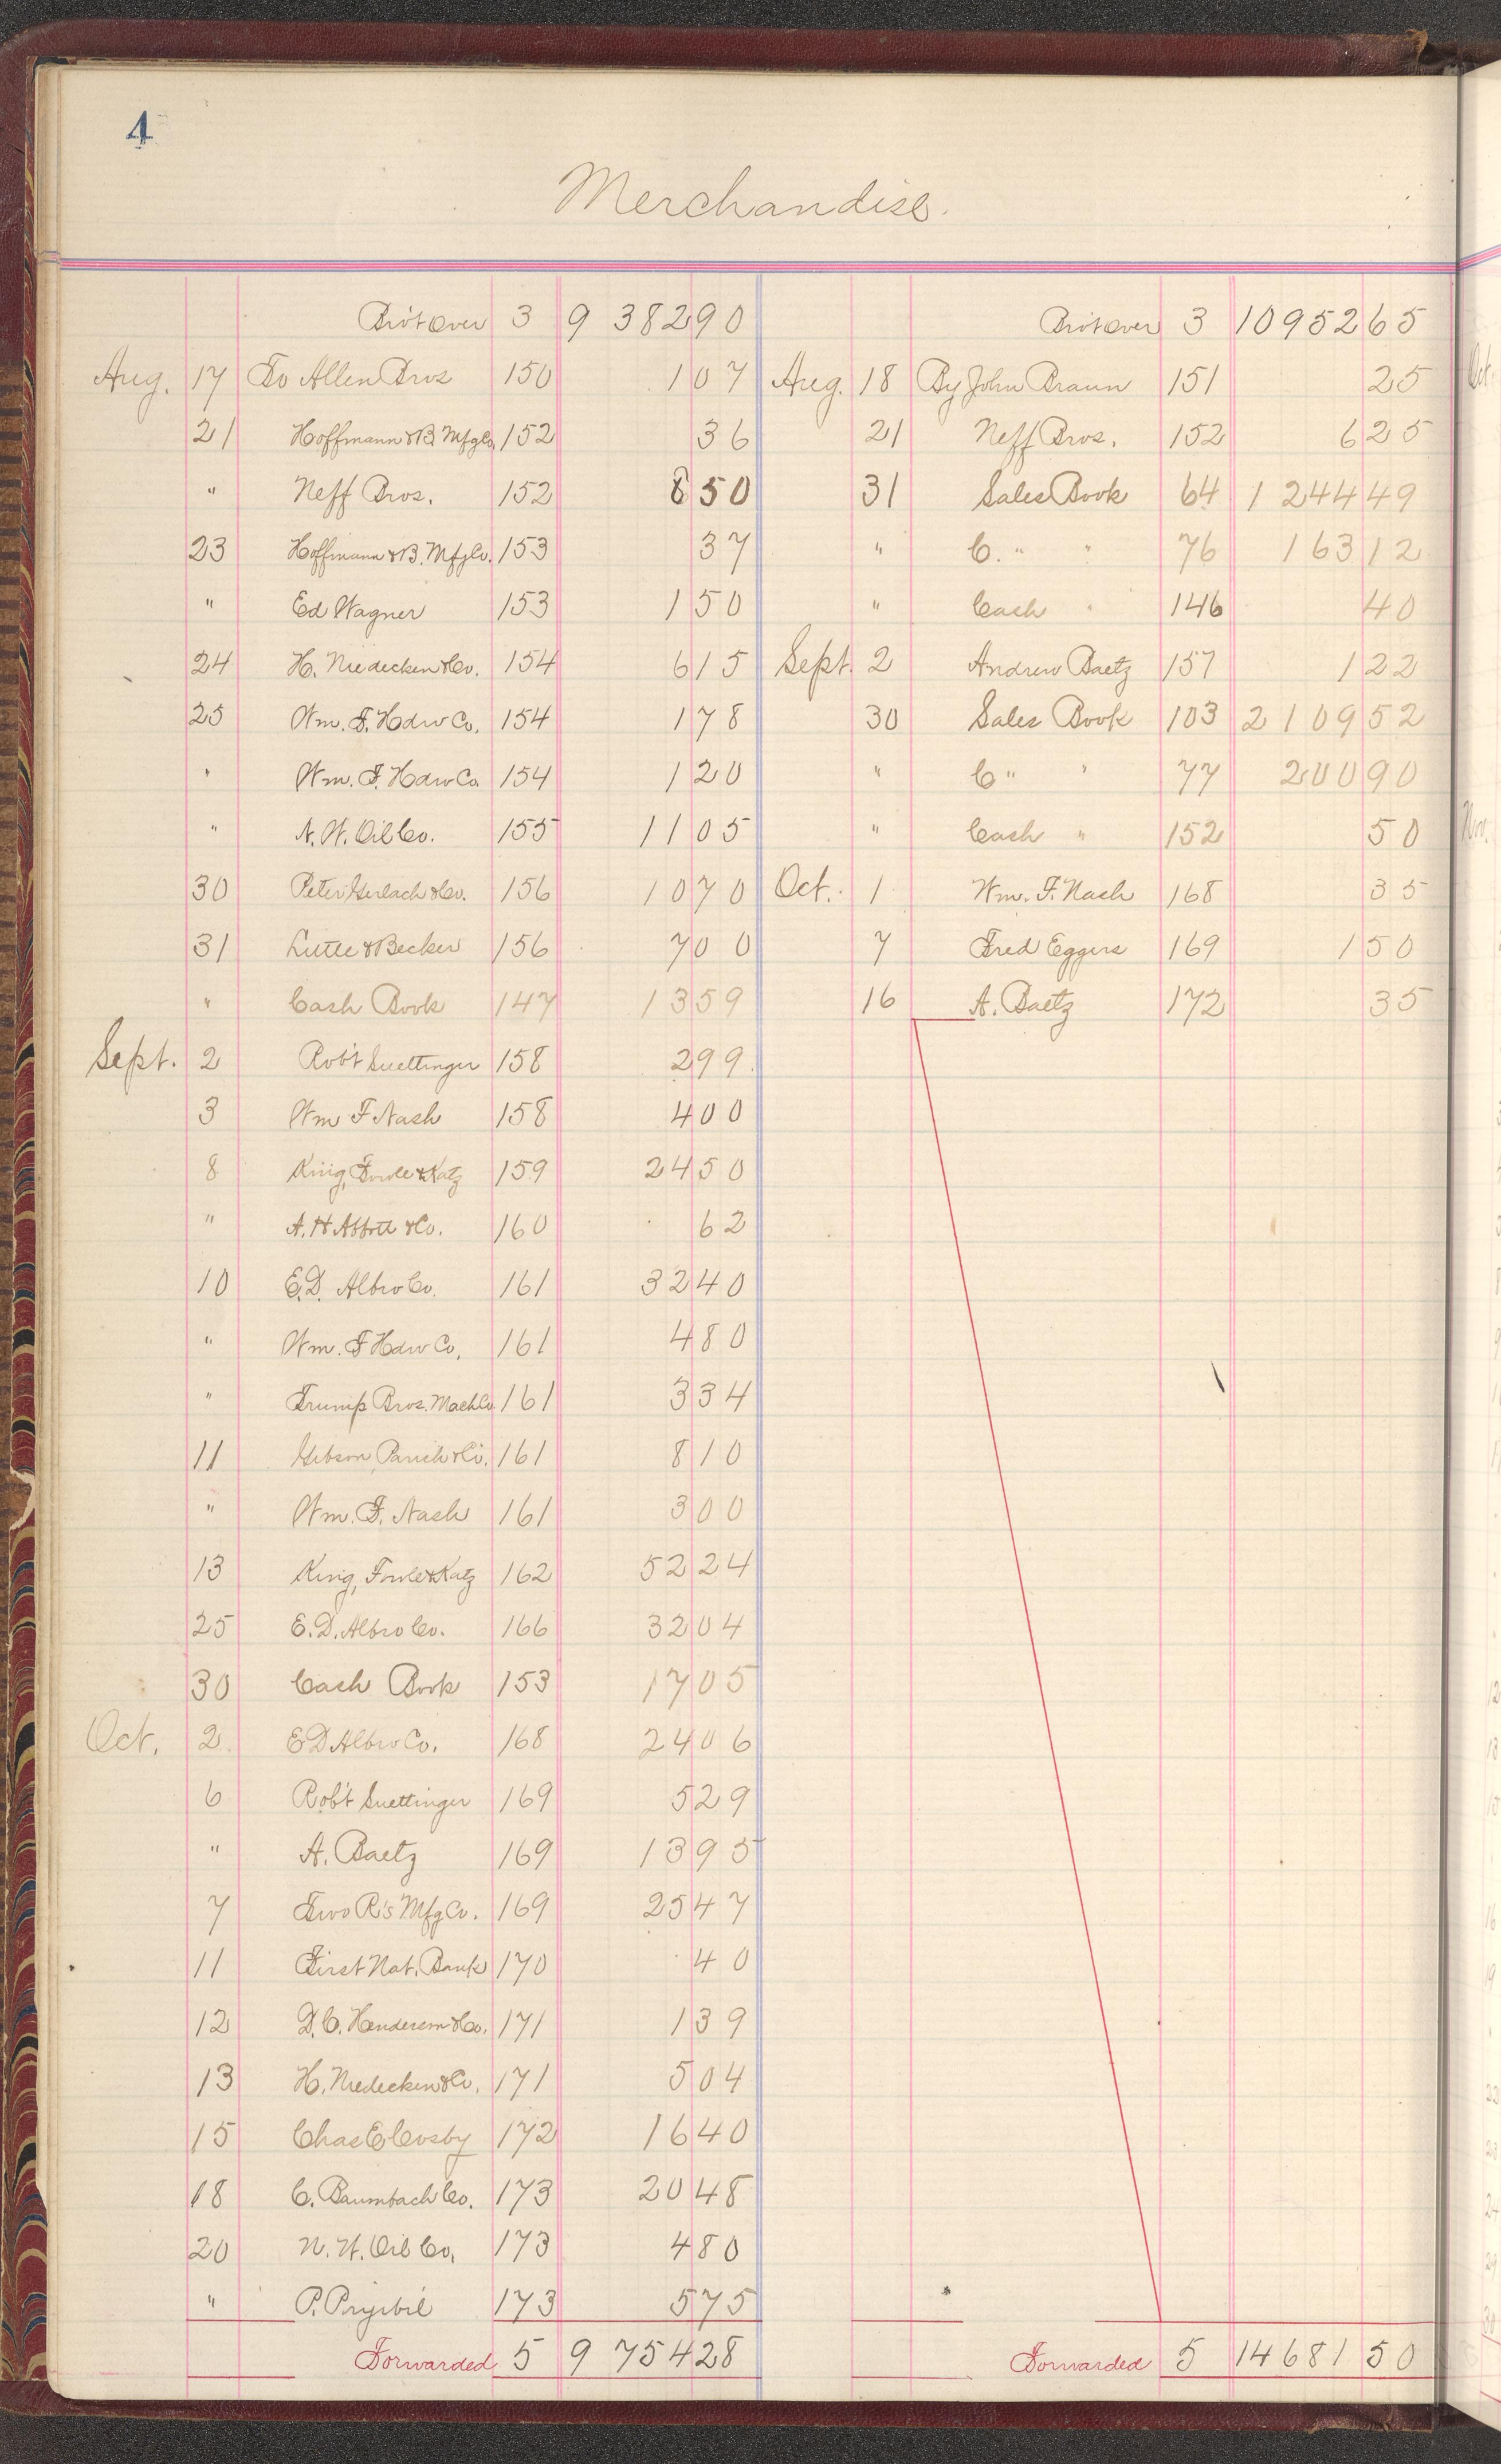 4
Merchandise.
Bro't Over 3 9 382 90
Aug. 17 To Allen Bros 150 1 07
21 Hoffmann & B. Mfg Co. 152 36
" Neff Bros. 152 8 50
23 Hoffmann & B. Mfg Co. 153 37
" Ed Wagner 153 1 50
24 H. Niedecken & Co. 154 6 15
25 Wm. F. Hdw Co. 154 1 78
" Wm. F. Hdw Co. 154 1 20
" N. W. Oil Co. 155 11 05
30 Peter Gerlach & Co. 156 10 70
31 Little & Becker 156 70 0
" Cash Book 147 13 59
Sept. 2 Rob't Suettinger 158 2 99
3 Wm F Nash 158 4 00
8 King, Fowle & Katz 159 24 50
" A. H. Abbott & Co. 160 62
10 E. D. Albro Co. 161 32 40
" Wm. F Hdw Co. 161 4 80
" Trump Bros. Mach Co 161 3 34
11 Gibson Parish & Co. 161 8 10
" Wm. F. Nash 161 3 00
13 King, Fowle & Katz 162 52 24
25 E. D. Albro Co. 166 32 04
30 Cash Book 153 17 05
Oct. 2 E D Albro Co. 168 24 06
6 Rob't Suettinger 169 5 29
" A. Baetz 169 13 95
7 Two R's Mfg Co. 169 25 47
11 First Nat. Bank 170 40
12 D. C. Henderson & Co. 171 1 39
13 H. Niedecken & Co. 171 5 04
15 Chas E Cosby 172 16 40
18 C. Baumbach Co. 173 20 48
20 N. W. Oil Co. 173 4 80
" P. Pryibil 173 5 75
Forwarded 5 9 754 28
Bro't over 3 10952 65
Aug. 18 By John Braun 151 25
21 Neff Bros. 152 6 25
31 Sales Book 64 1 244 49
" C. " " 76 163 12
" Cash " 146 40
Sept. 2 Andrew Baetz 157 1 22
30 Sales Book 103 2 109 52
" C " " 77 200 90
" Cash " 152 50
Oct. 1 Wm. F. Nash 168 35
7 Fred Eggers 169 1 50
16 A. Baetz 172 35
Forwarded 5 14681 50
Oct.
Nov.